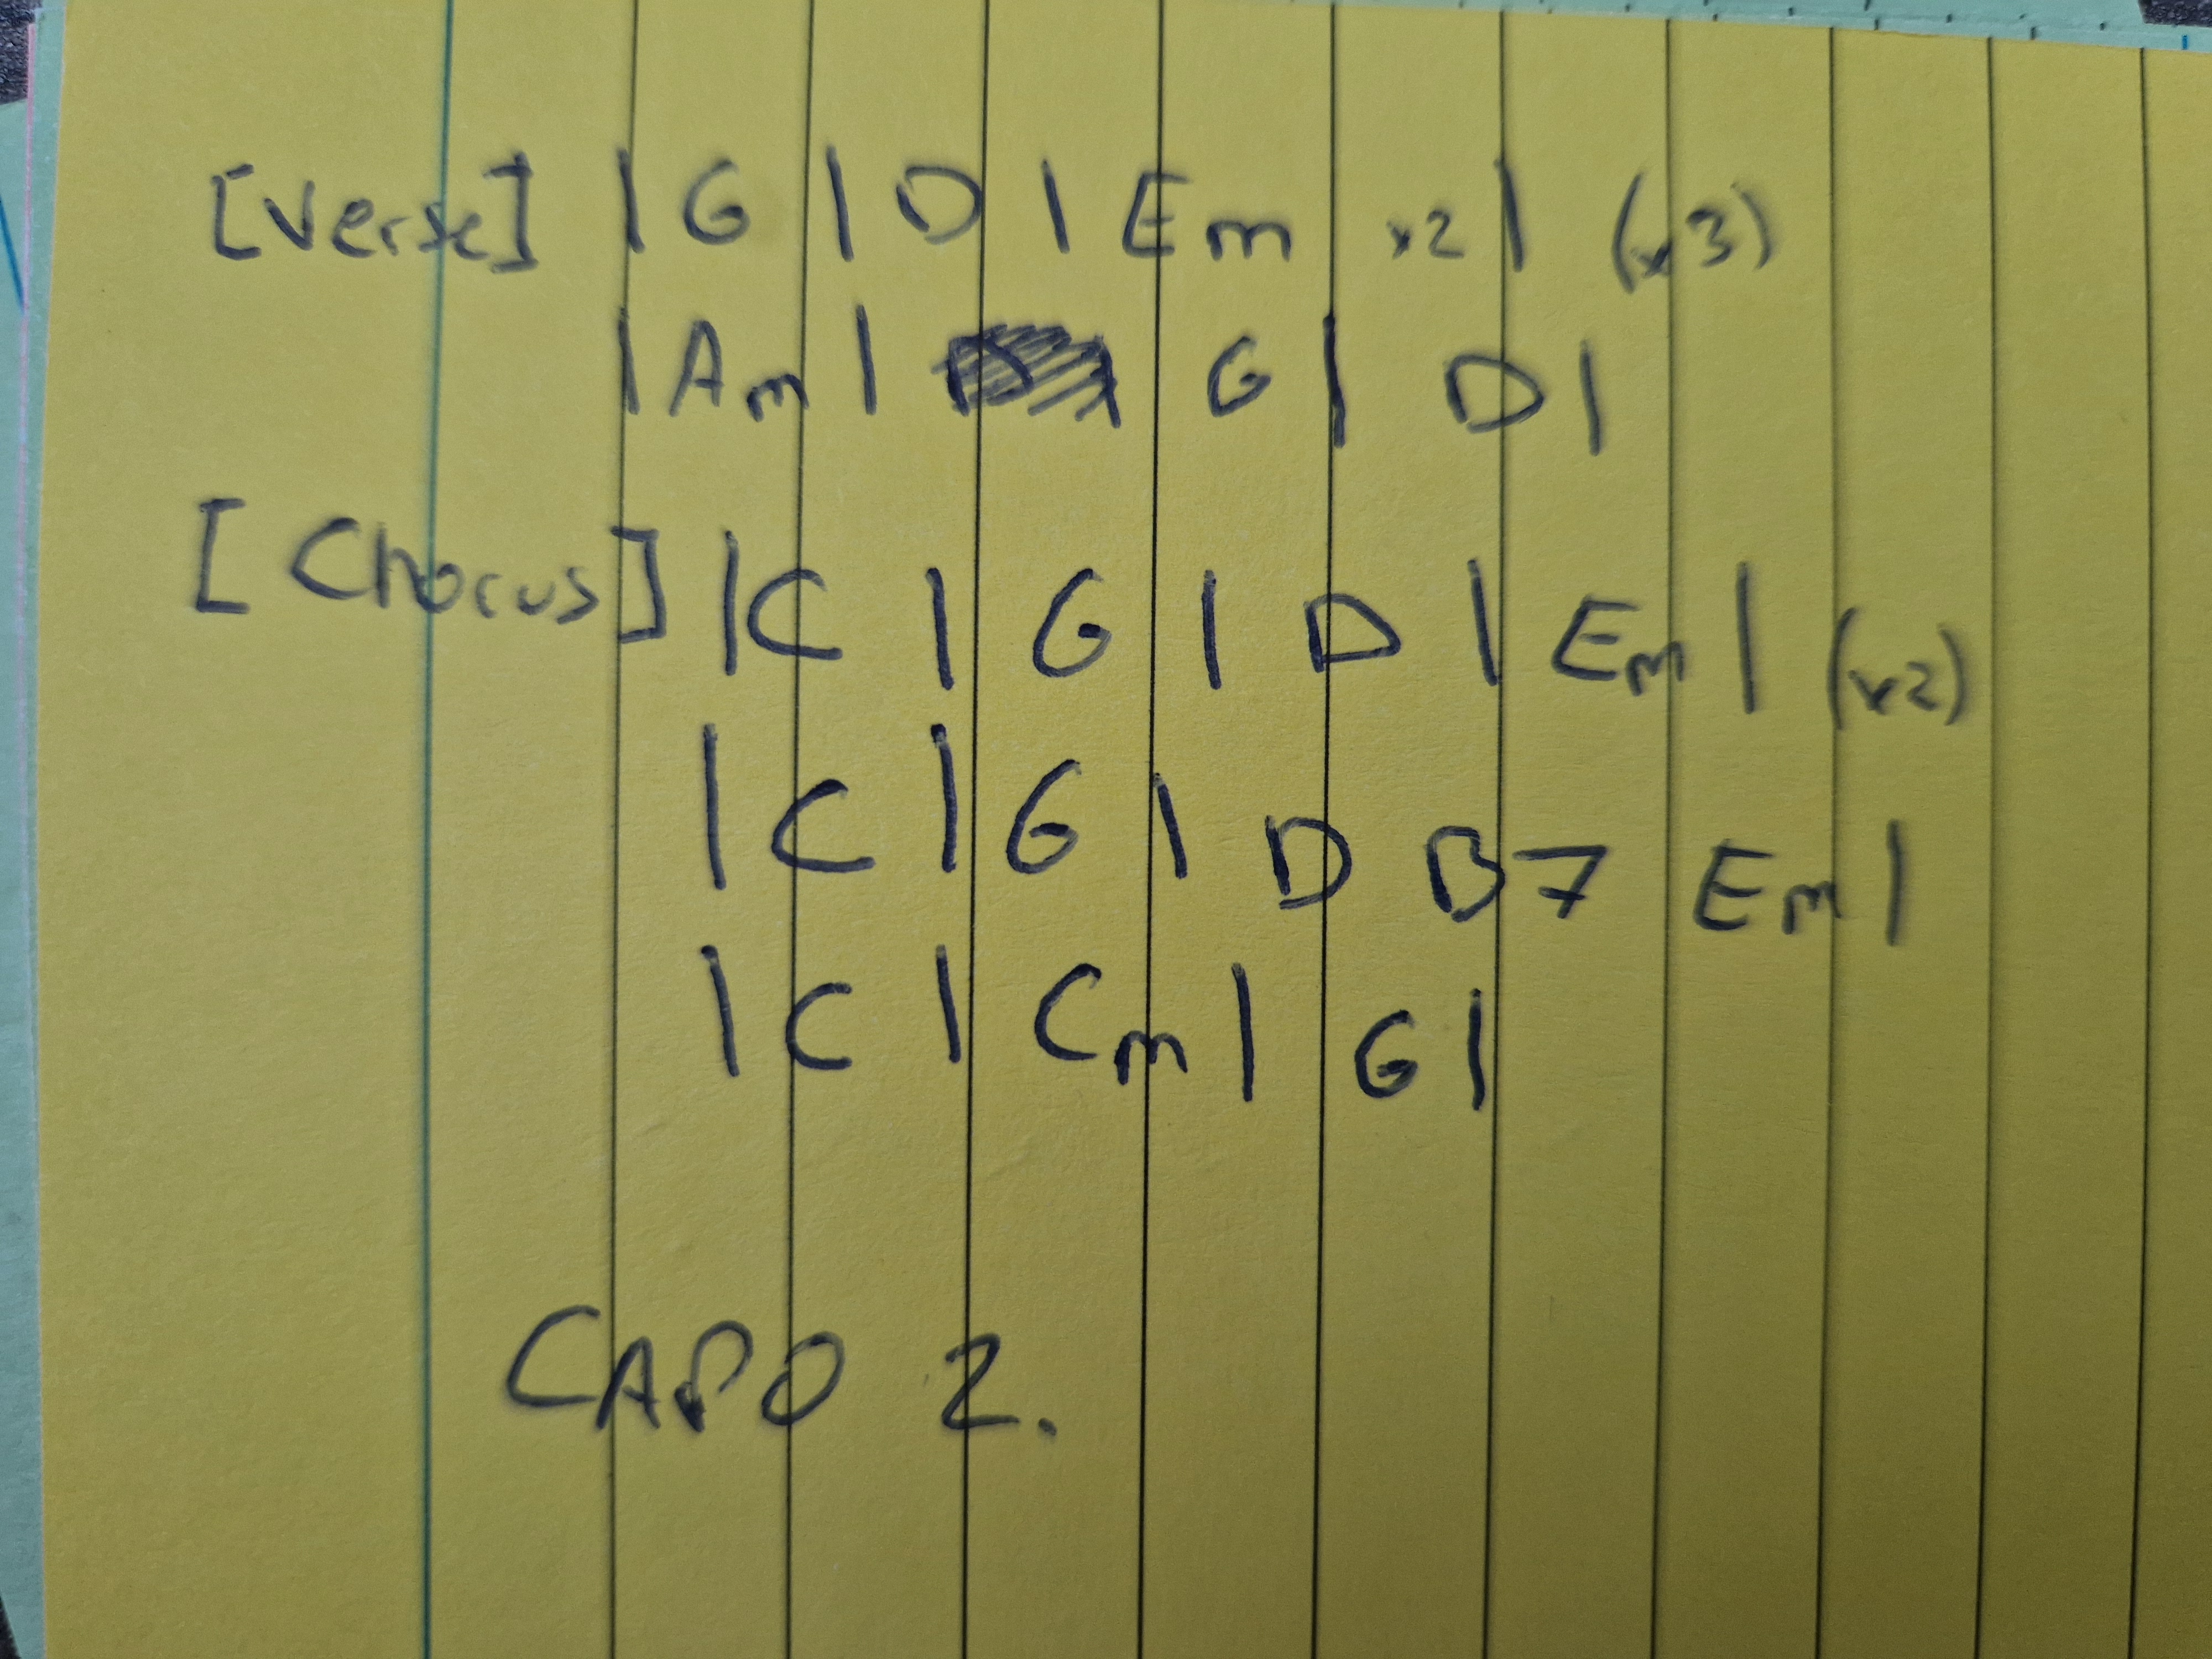 [Verse] | G | D | Em x2 | (x3)
| Am | G | D |
[Chorus] | C | G | D | Em | (x2)
| C | G | D B7 Em |
| C | Cm | G |
CAPO 2.